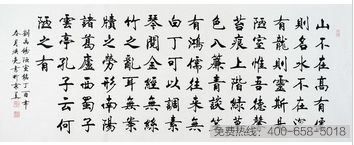 山不在高有僊
則名水不在深
有龍則靈斯是
陋室惟吾德馨
苔痕上階綠草
色入簾青談笑
有鴻儒往來無
白丁可以調素
琴閱金經無絲
竹之亂耳無案
牘之勞形南陽
諸葛廬西蜀子
雲亭孔子云何
陋之有
劉禹錫陋室銘丁酉年
春月
免费热线：400-658-5018